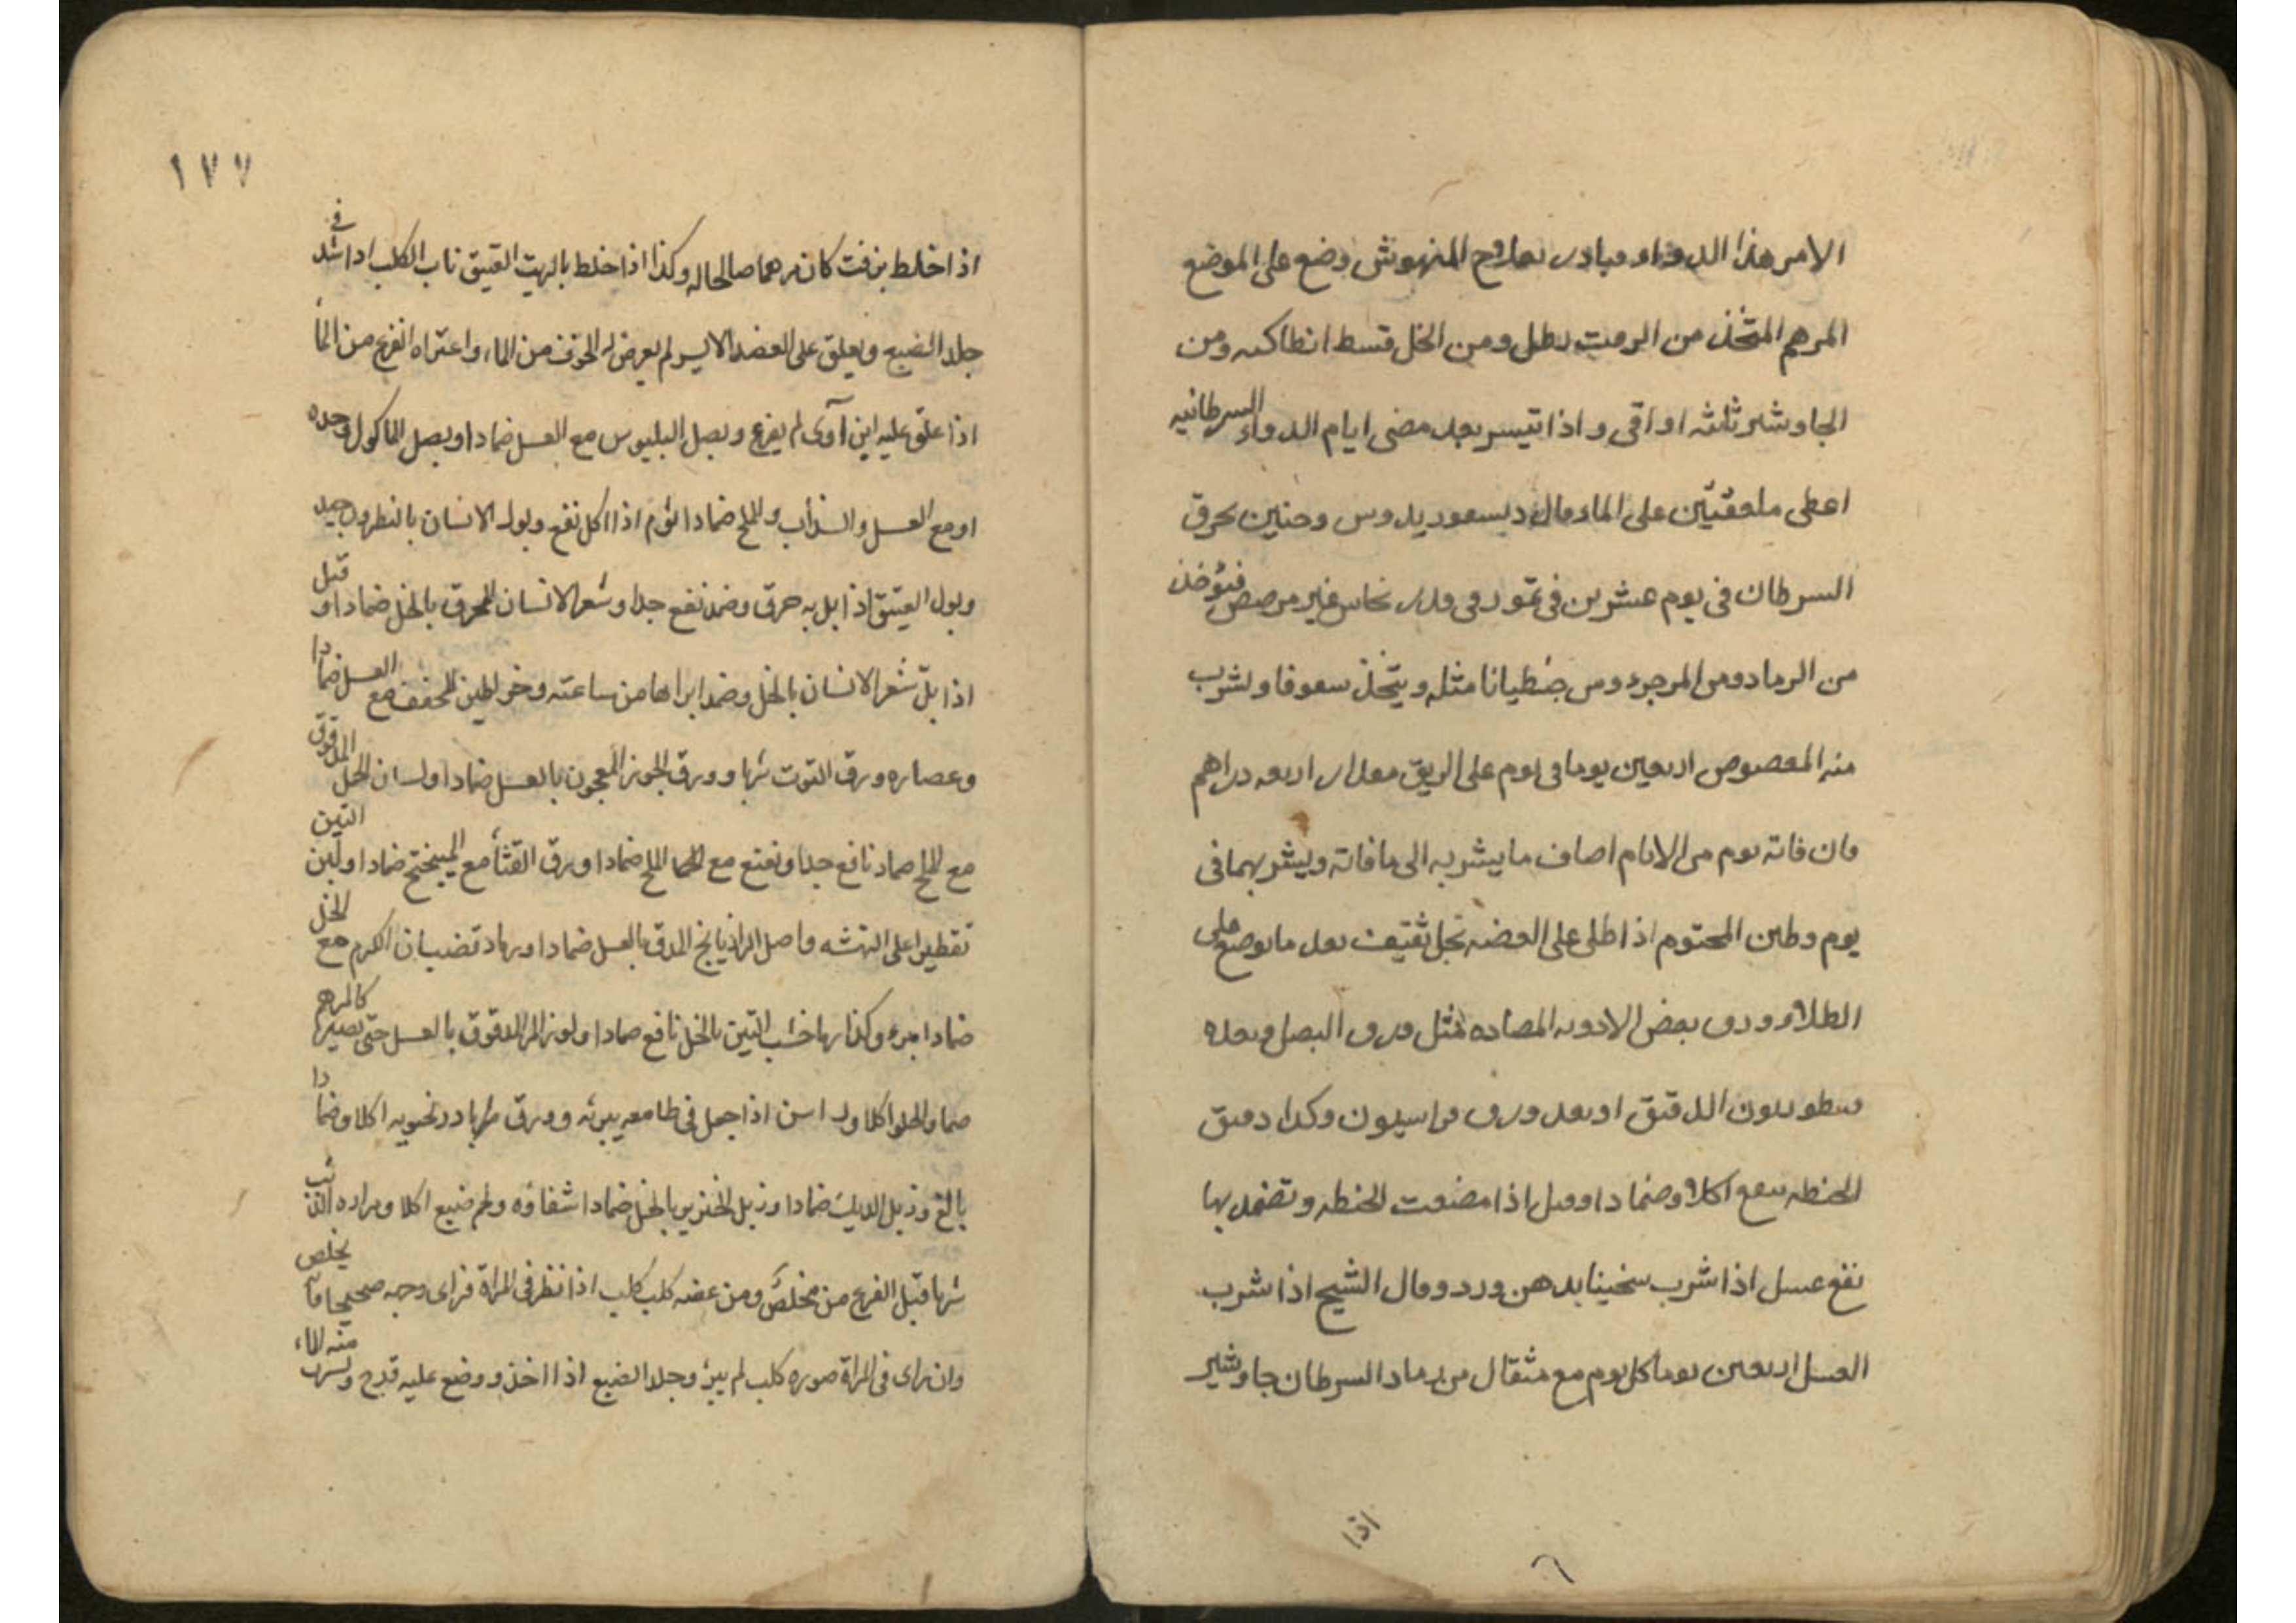 الامر هذا الدواء وبادر بعلاج المنهوش وضع على الموضع
المرهم المتخذ من الزفت رطل ومن الخل قسط انطاكيه ومن
الجاوشير ثلثه اواقى واذا تيسر بعد مضى ايام الدواء السرطانيه
اعطى ملعقتين على الماء وقال ديسقوريدوس وحنين يحرق
السرطان فى يوم عشرين فى تموز وفى قدر نحاس غير مرصص فيؤخذ
من الرماد ومن المر جزء ومن جنطيانا مثله ويتخذ سفوفا ويشرب
منه المعضوض اربعين يوما فى يوم على الريق مقدار اربعه دراهم
وان فاته يوم من الايام اضاف ما يشربه الى ما فاته ويشربهما فى
يوم وطين المختوم اذا طلى على العضه بخل ثقيف بعد ما يوضع على
الطلاء ورق بعض الادويه المضاده مثل ورق البصل وبعده
الدقيق او بعد ورق فراسيون وكذا دقيق
الحنطه ينفع اكلا وضمادا وقيل اذا مضغت الحنطه وتضمد بها
نفع عسل اذا شرب سخينا بدهن ورد وقال الشيخ اذا شرب
العسل اربعين يوما كل يوم مع مثقال من رماد السرطان جاوشير
اذا
١٧٧
اذا خلط بزفت كان مرهما صالحا له وكذا اذا خلط بالزيت العتيق ناب الكلب اذا شد فى
جلد الضبع ويعلق على العضد الايسر لم يعرض له الخوف من الماء واعتراه الفزع من الماء
اذا علق عليه ابن آوى لم يفزع وبصل البلبوس مع العسل ضمادا وبصل الماكول وحده
او مع العسل والسذاب والملح ضمادا الثوم اذا اكل نفع وبول الانسان بالنطرون جيد
وبول العتيق اذا بل به خرق وضمد نفع جدا وشعر الانسان المحرق بالخل ضمادا وقيل
اذا بل شعر الانسان بالخل وضمد ابراها من ساعته وخراطين المجفف مع العسل ضمادا
وعصاره ورق التوت شربا وورق الجوز المعجون بالعسل ضمادا ولسان الحمل المدقوق
مع الملح ضماد نافع جدا ونعنع مع الملح ضمادا ورق القثاء مع الميبختج ضمادا ولبن التين
تقطيرا على النهشه واصل الرازيانج المدق بالعسل ضمادا ورماد قضبان الكرم مع الخل
ضمادا جزء وكذا رماد خشب التين بالخل نافع ضمادا ولوز المر المدقوق بالعسل حتى يصير كالمرهم
ضمادا والحلو اكلا اذا جعل فى طعامه يبرئه وورق بادرنجبويه اكلا وضمادا
بالغ وزبل الديك ضمادا وزبل الخنزير بالخل ضمادا شفاؤه ولحم ضبع اكلا ومراره الذئب
شربا قبل الفزع من مخلص ومن عضه كلب كلب اذا نظر فى المراة فراى وجه صحيحا فانه يخلص
وان راى فى المراة صوره كلب لم يبرء وجلد الضبع اذا اخذ ووضع عليه قدح وشرب منه الماء